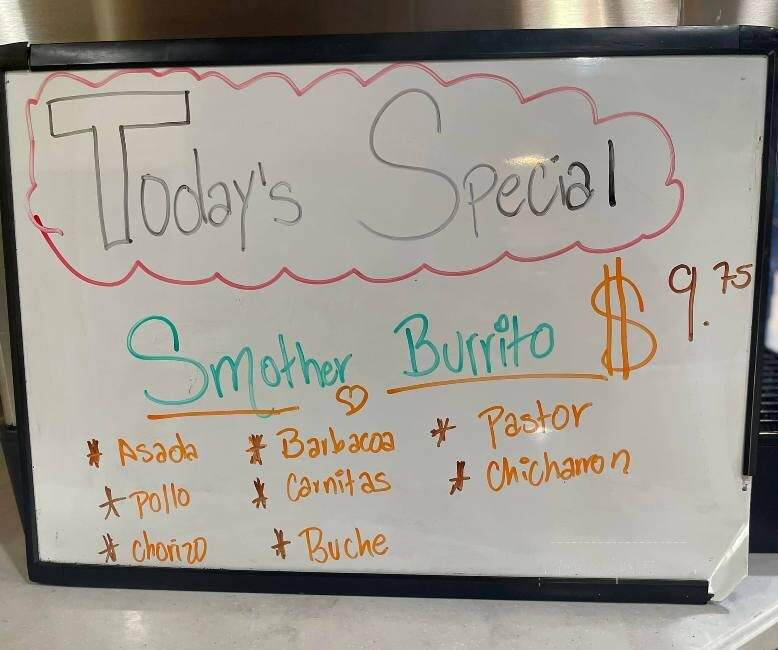 Today's Special
Smother Burrito $9.75
* Asada * Barbacoa * Pastor
* Pollo * Carnitas * Chicharron
* Chorizo * Buche